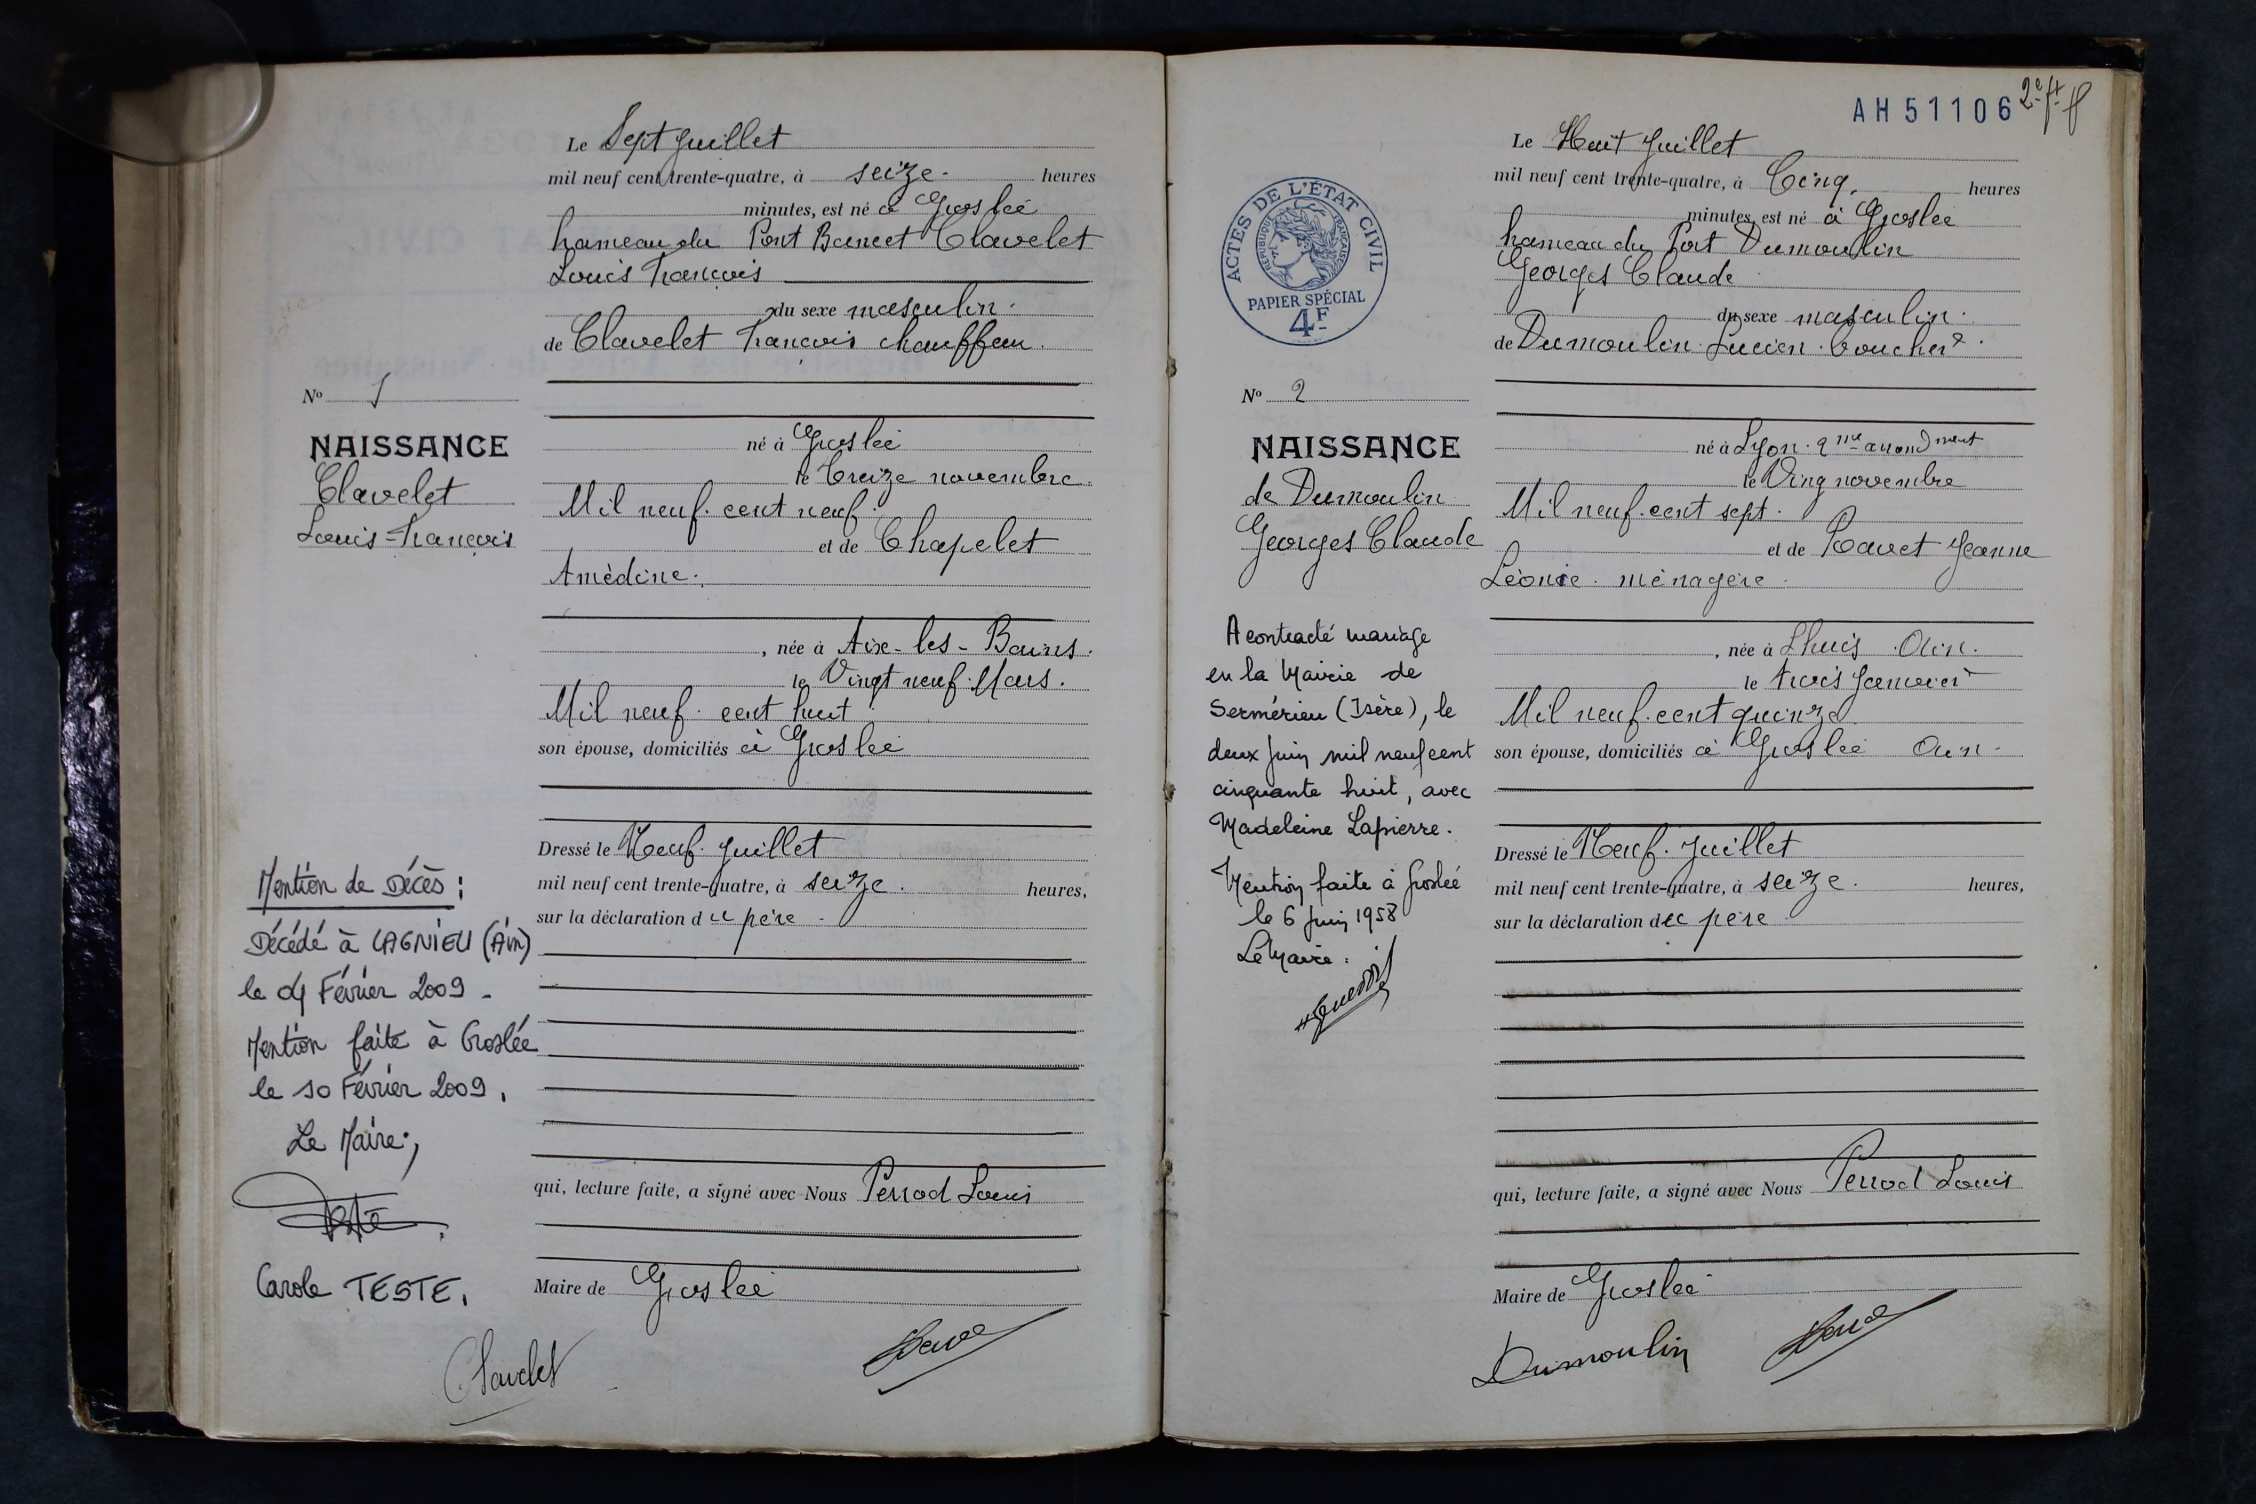 Le Sept Juillet
mil neuf cent trente-quatre, à seize. heures
minutes, est né à Groslée
hameau du Port Clavelet
Louis François
du sexe masculin.
de Clavelet François chauffeur.
No 1
NAISSANCE
Clavelet
Louis-François
né à Groslée
le treize novembre
Mil neuf. cent neuf.
et de Chapelet
Amèdine.
, née à Aix-les-Bains.
le Vingt neuf. Mars.
Mil neuf. cent huit
son épouse, domiciliés à Groslée
Dressé le Neuf. Juillet
mil neuf cent trente-quatre, à seize. heures,
sur la déclaration du père.
Mention de Décès :
Décédé à LAGNIEU (Ain)
le 04 Février 2009 -
Mention faite à Groslée
le 10 Février 2009.
Le Maire,
Teste
Carole TESTE.
qui, lecture faite, a signé avec Nous Perrod Louis
Maire de Groslée
Clavelet
AH51106
Le Huit Juillet
mil neuf cent trente-quatre, à Cinq. heures
minutes, est né à Groslée
hameau du Port Dumoulin
Georges Claude
du sexe masculin.
de Dumoulin. Lucien. boucher.
ACTES DE L'ÉTAT CIVIL
RÉPUBLIQUE FRANÇAISE
PAPIER SPÉCIAL
4F
No 2
NAISSANCE
de Dumoulin
Georges Claude
né à Lyon. 2me arrondment
le Ving novembre
Mil neuf. cent sept.
et de Ravet Jeanne
Léonie. ménagère.
, née à Lhuis. Ain.
le trois Janvier
Mil neuf. cent quinze
son épouse, domiciliés à Groslée Ain.
A contracté mariage
en la Mairie de
Sermérieu (Isère), le
deux Juin mil neuf cent
cinquante huit, avec
Madeleine Lapierre.
Mention faite à Groslée
le 6 Juin 1958
Le Maire.
Dressé le Neuf. Juillet
mil neuf cent trente-quatre, à seize. heures,
sur la déclaration du père
qui, lecture faite, a signé avec Nous Perrod Louis
Maire de Groslée
Dumoulin